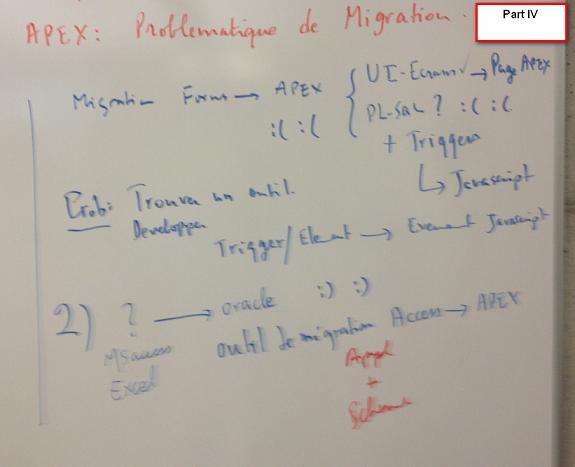 Part IV
APEX: Problematique de Migration.
Migration Forms → APEX
:( :(
UI-Ecran → Page APEX
PL-SQL ? :( :(
+ Triggers
↳ Javascript
Prob: Trouver un outil.
Developper
Trigger/Element → Evement Javascript
2) ? → oracle :) :)
MSaccess
Excel
outil de migration Access → APEX
+
Schema